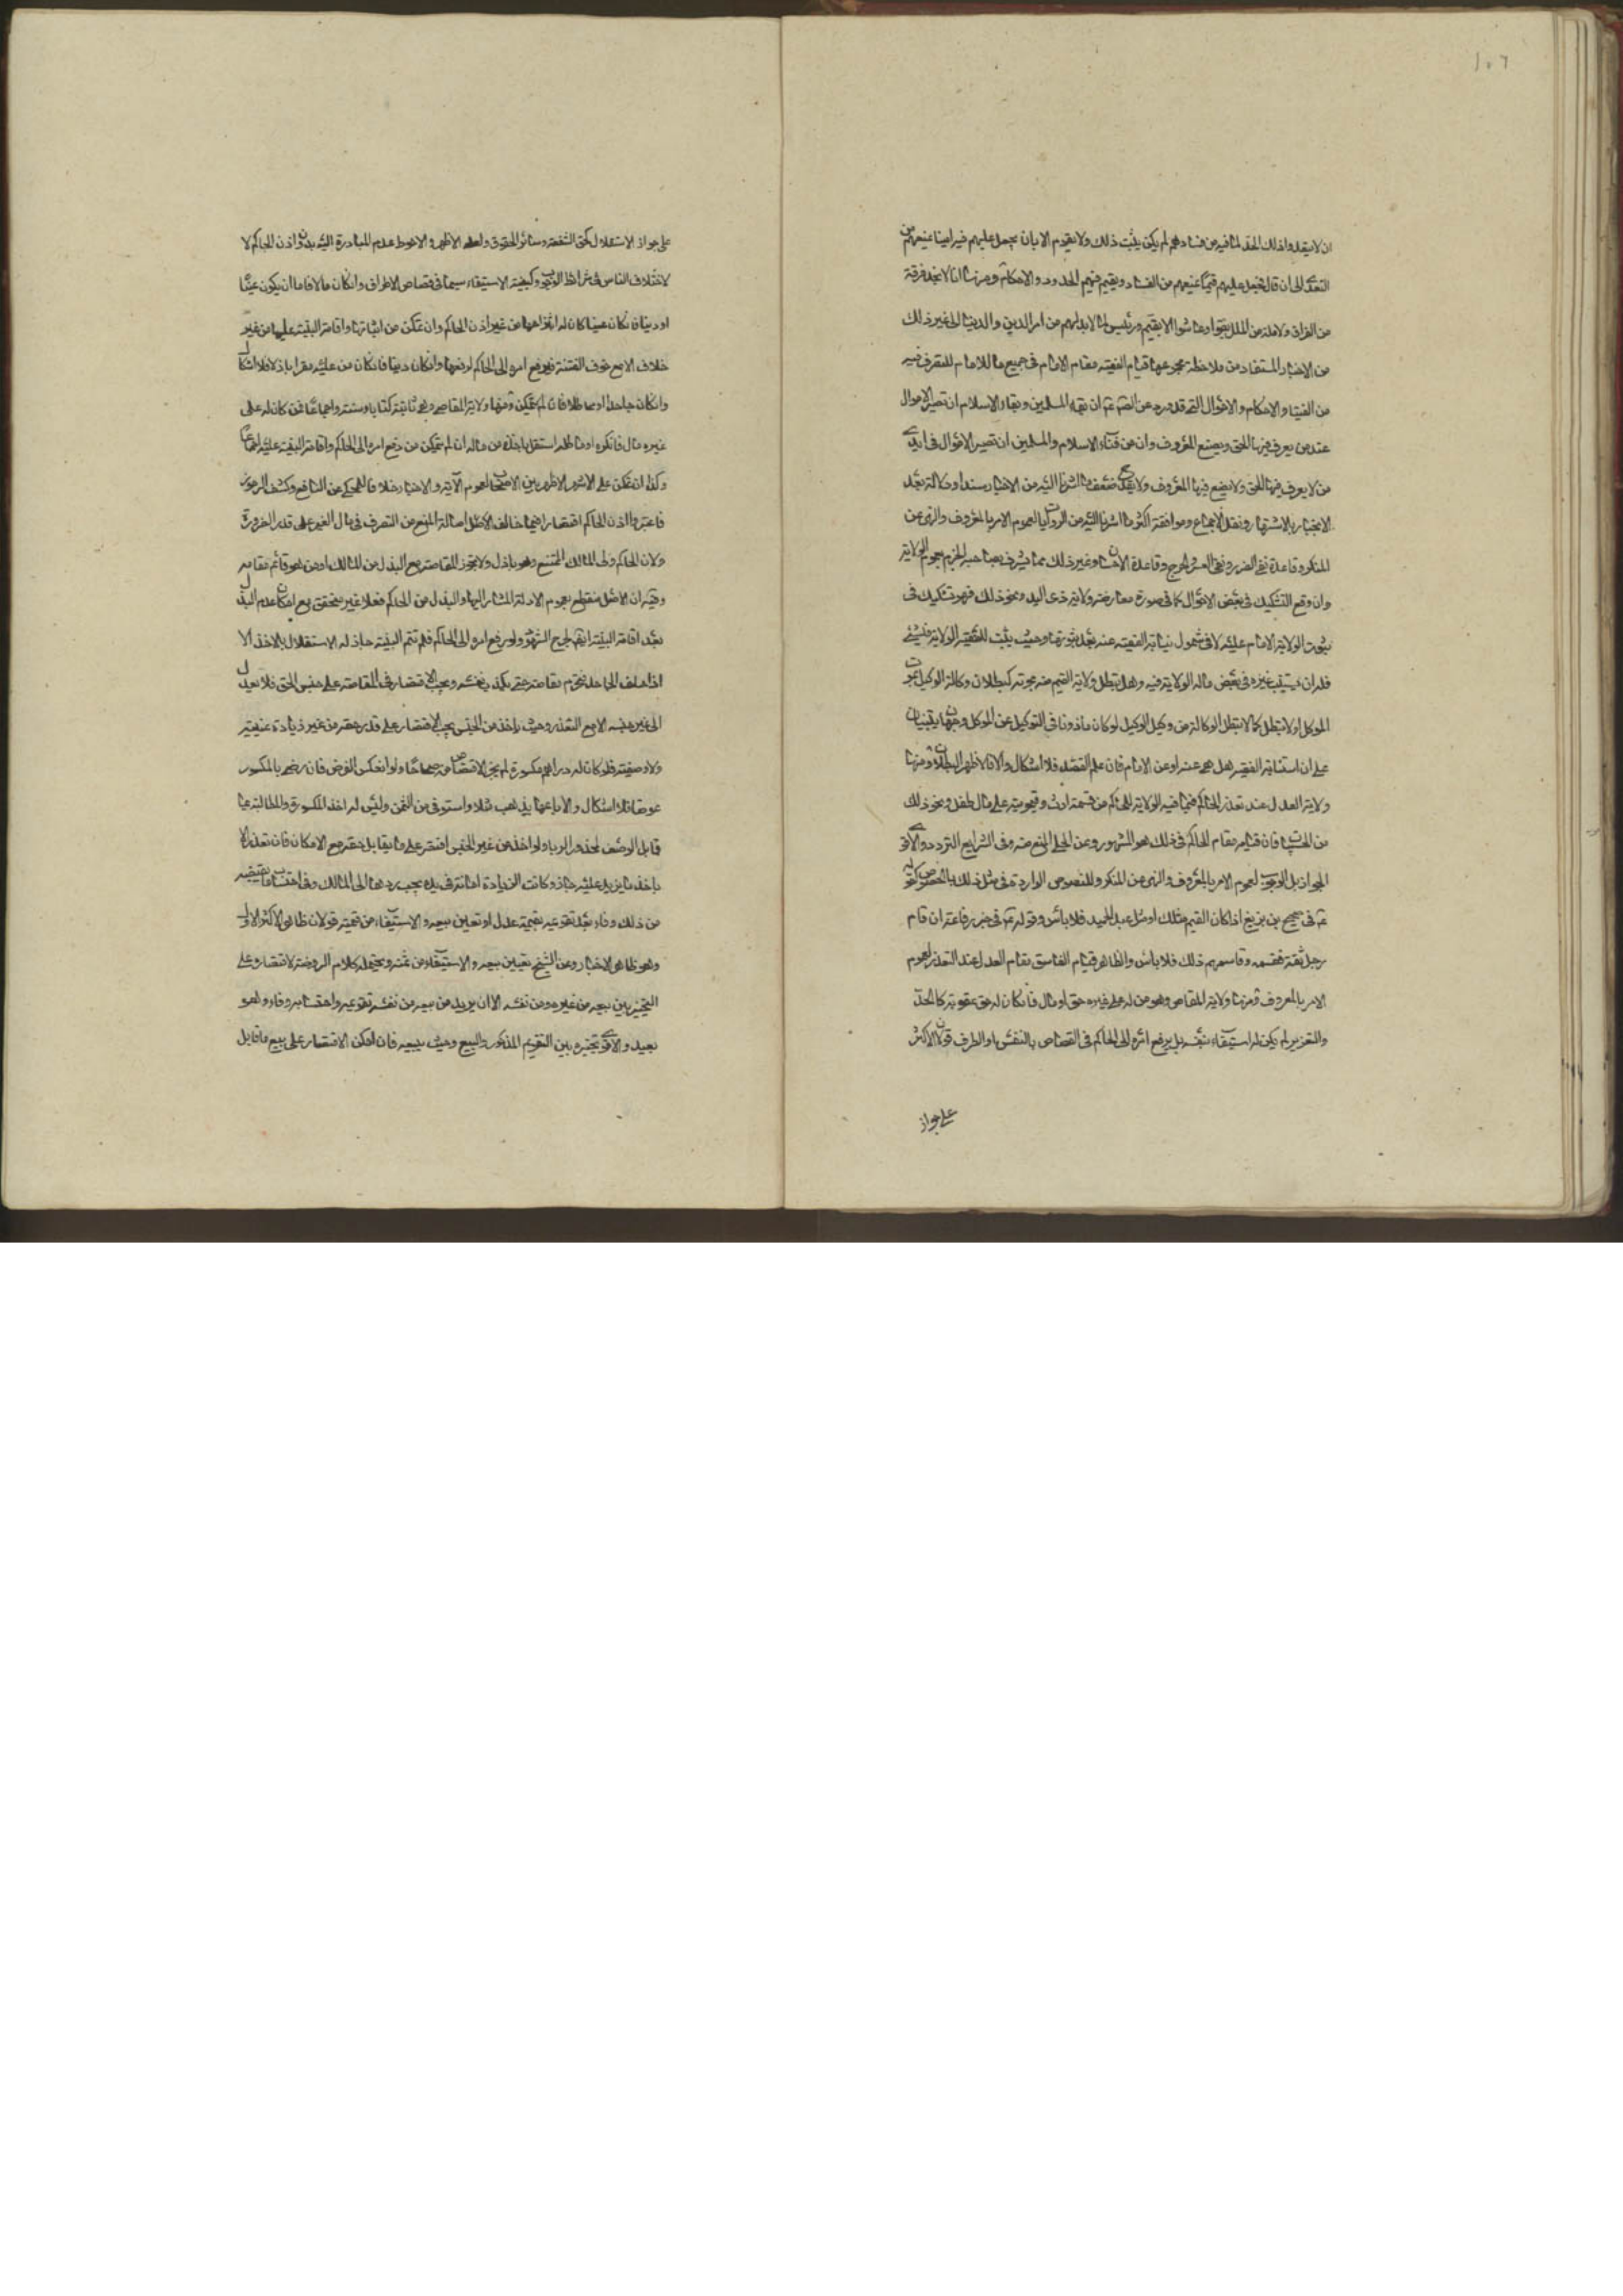 ١٠٦
ان لا يتعدوا ذلك الحد لما فيه من فسادهم لم يكن يثبت ذلك ولا يقوم الا بان يجعل عليهم فيه امينا يمنعهم من
التعدى الى ان قال فجعل عليهم قيما يمنعهم من الفساد ويقيم فيهم الحدود والاحكام ومنها انا لا نجد فرقة
من الفرق ولا ملة من الملل بقوا وعاشوا الا بقيم ورئيس لما لا بد لهم من امر الدين والدنيا الى غير ذلك
من الاخبار المستفاد من ملاحظة مجموعها قيام الفقيه مقام الامام فى جميع ما للامام للتصرف فيه
من الفتيا والاحكام والاموال التى قد ورد عن الصم عم ان بقاء المسلمين وبقاء الاسلام ان تصير الاموال
عند من يعرف فيها الحق ويصنع المعروف وان من فناء الاسلام والمسلمين ان تصير الاموال فى ايدى
من لا يعرف فيها الحق ولا يصنع فيها المعروف ولا يقدح ضعف ما اشرنا اليه من الاخبار سندا ودلالة بعد
الانجبار بالاشتهار ونقل الاجماع وموافقة اكثر ما اشرنا اليه من الروايات لعموم الامر بالمعروف والنهى عن
المنكر وقاعدة نفى الضرر ونفى العسر والحرج وقاعدة الاحسان وغير ذلك مما يشرف بصاحبه الجزم بعموم الولاية
وان وقع التشكيك فى بعض الاموال كما فى صورة معارضته ولاية ذى اليد ونحو ذلك فهو تشكيك فى
ثبوت الولاية الامام عليه لا فى شمول نيابة الفقيه عنه بعد ثبوتها وحيث يثبت للفقيه الولاية فى شئ
فله ان يستنيب غيره فى بعض ماله الولاية فيه وهل تبطل ولاية القيم منه بموته كبطلان وكالة الوكيل بموت
الموكل او لا تبطل كما لا تبطل الوكالة من وكيل الوكيل لو كان ماذونا فى التوكيل عن الموكل وجهان يبتنيان
على ان استنابة الفقيه هل هى عنه او عن الامام فان علم القصد فلا اشكال والا فالاظهر البطلان ومنها
ولاية العدل عند تعذر الحاكم فيما فيه الولاية للحاكم من قسمة ارث وقيمومية على مال طفل ونحو ذلك
من الحسبيات فان قيامه مقام الحاكم فى ذلك هو المشهور وعن الحلى المنع منه وفى الشرايع التردد والاقوى
الجواز بل الوجوب لعموم الامر بالمعروف والنهى عن المنكر وللنصوص الواردة فى مثل ذلك بالخصوص كقوله
عم فى صحيح بن بزيع اذا كان القيم مثلك او مثل عبد الحميد فلا بأس وقوله عم فى خبر رفاعة ان قام
رجل ثقة فقسمه وقاسمهم ذلك فلا باس والظاهر قيام الفاسق مقام العدل عند التعذر لعموم
الامر بالمعروف ومنها ولاية المقاص وهو من له على غيره حق او مال فان كان له حق عقوبة كالحد
والتعزير لم يكن له استيفاء بنفسه بل يرفع امره الى الحاكم فى القصاص بالنفس او الطرف قولان الاكثر
على جواز
على جواز الاستقلال كحق الشفعة وسائر الحقوق ولعله الاظهر والاحوط عدم المبادرة اليه بدون اذن الحاكم لا
لاختلاف الناس فى شرائط الوجوب وكيفية الاستيفاء سيما فى قصاص الاطراف وان كان مالا فاما ان يكون عينا
او دينا فان كان عينا كان له انتزاعها من غير اذن الحاكم وان تمكن من اثباتها واقامة البينة عليها من غير
خلاف الا مع خوف الفتنة فيرفع امره الى الحاكم لرفعها وان كان دينا فان كان من عليه مقرا باذلا فلا اشكال
وان كان جاحدا او مماطلا فان لم يتمكن فمنها ولاية المقاصة وهى ثابتة كتابا وسنة واجماعا فمن كان له على
غيره مال فانكره او ماطله استقل باخذه من ماله ان لم يتمكن من رفع امره الى الحاكم واقامة البينة عليه اجماعا
وكذا ان تمكن على الاشهر الاظهر بين الاصحاب لعموم الاية والاخبار خلافا للمحكى عن النافع وكشف الرموز
فاعتبروا اذن الحاكم اقتصارا فيما خالف الاصل اصالة المنع من التصرف فى مال الغير على قدر الضرورة
ولان الحاكم ولى المالك الممتنع وهو باذل ولا تجوز المقاصة مع البذل من المالك او من هو قائم مقامه
وفيه ان الاصل منقطع بعموم الادلة المشار اليها والبذل من الحاكم فعلا غير متحقق مع امكان عدم البذل
بعد اقامة البينة ايضا لجرح الشهود ولو رفع امره الى الحاكم فلم تتم البينة جاز له الاستقلال بالاخذ الا
اذا حلف الجاحد فتحرم مقاصته حتى يكذب نفسه ويجب الاقتصار فى المقاصة على جنس الحق فلا يعدل
الى غير جنسه الا مع التعذر وحيث ياخذ من الجنس يجب الاقتصار على قدر حقه من غير زيادة عينية
ولا وصفية فلو كان له دراهم مكسورة لم يجز الاقتصاص من صحاحا ولو انعكس الفرض فان رضى بالمكسور
عوضا فلا اشكال والا باعها بذهب مثلا واستوفى من الثمن وليس له اخذ المكسورة والمطالبة بما
قابل الوصف لمحذور الربا ولو اخذ من غير الجنس اقتصر على ما يقابل حقه مع الامكان فان تعذر الا
باخذ ما يزيد عليه جاز وكانت الزيادة امانة فى يده يجب ردها الى المالك وفى احتساب ما يقتضيه
من ذلك وفاء بعد تقويمه بقيمة عدل او تعين بيعه والاستيفاء من قيمته قولان ظاهر الاكثر الاول
وهو ظاهر الاخبار وعن الشيخ تعيين بيعه والاستيفاء من ثمنه ويحتمله كلام الروضة لاقتصاره على
التخيير بين بيعه من غيره ومن نفسه الا ان يريد من بيعه من نفسه تقويمه واحتسابه وفاء وهو
بعيد والاقوى تخيره بين التقويم المذكور والبيع وحيث يبيعه فان امكن الاقتصار على بيع ما قابل